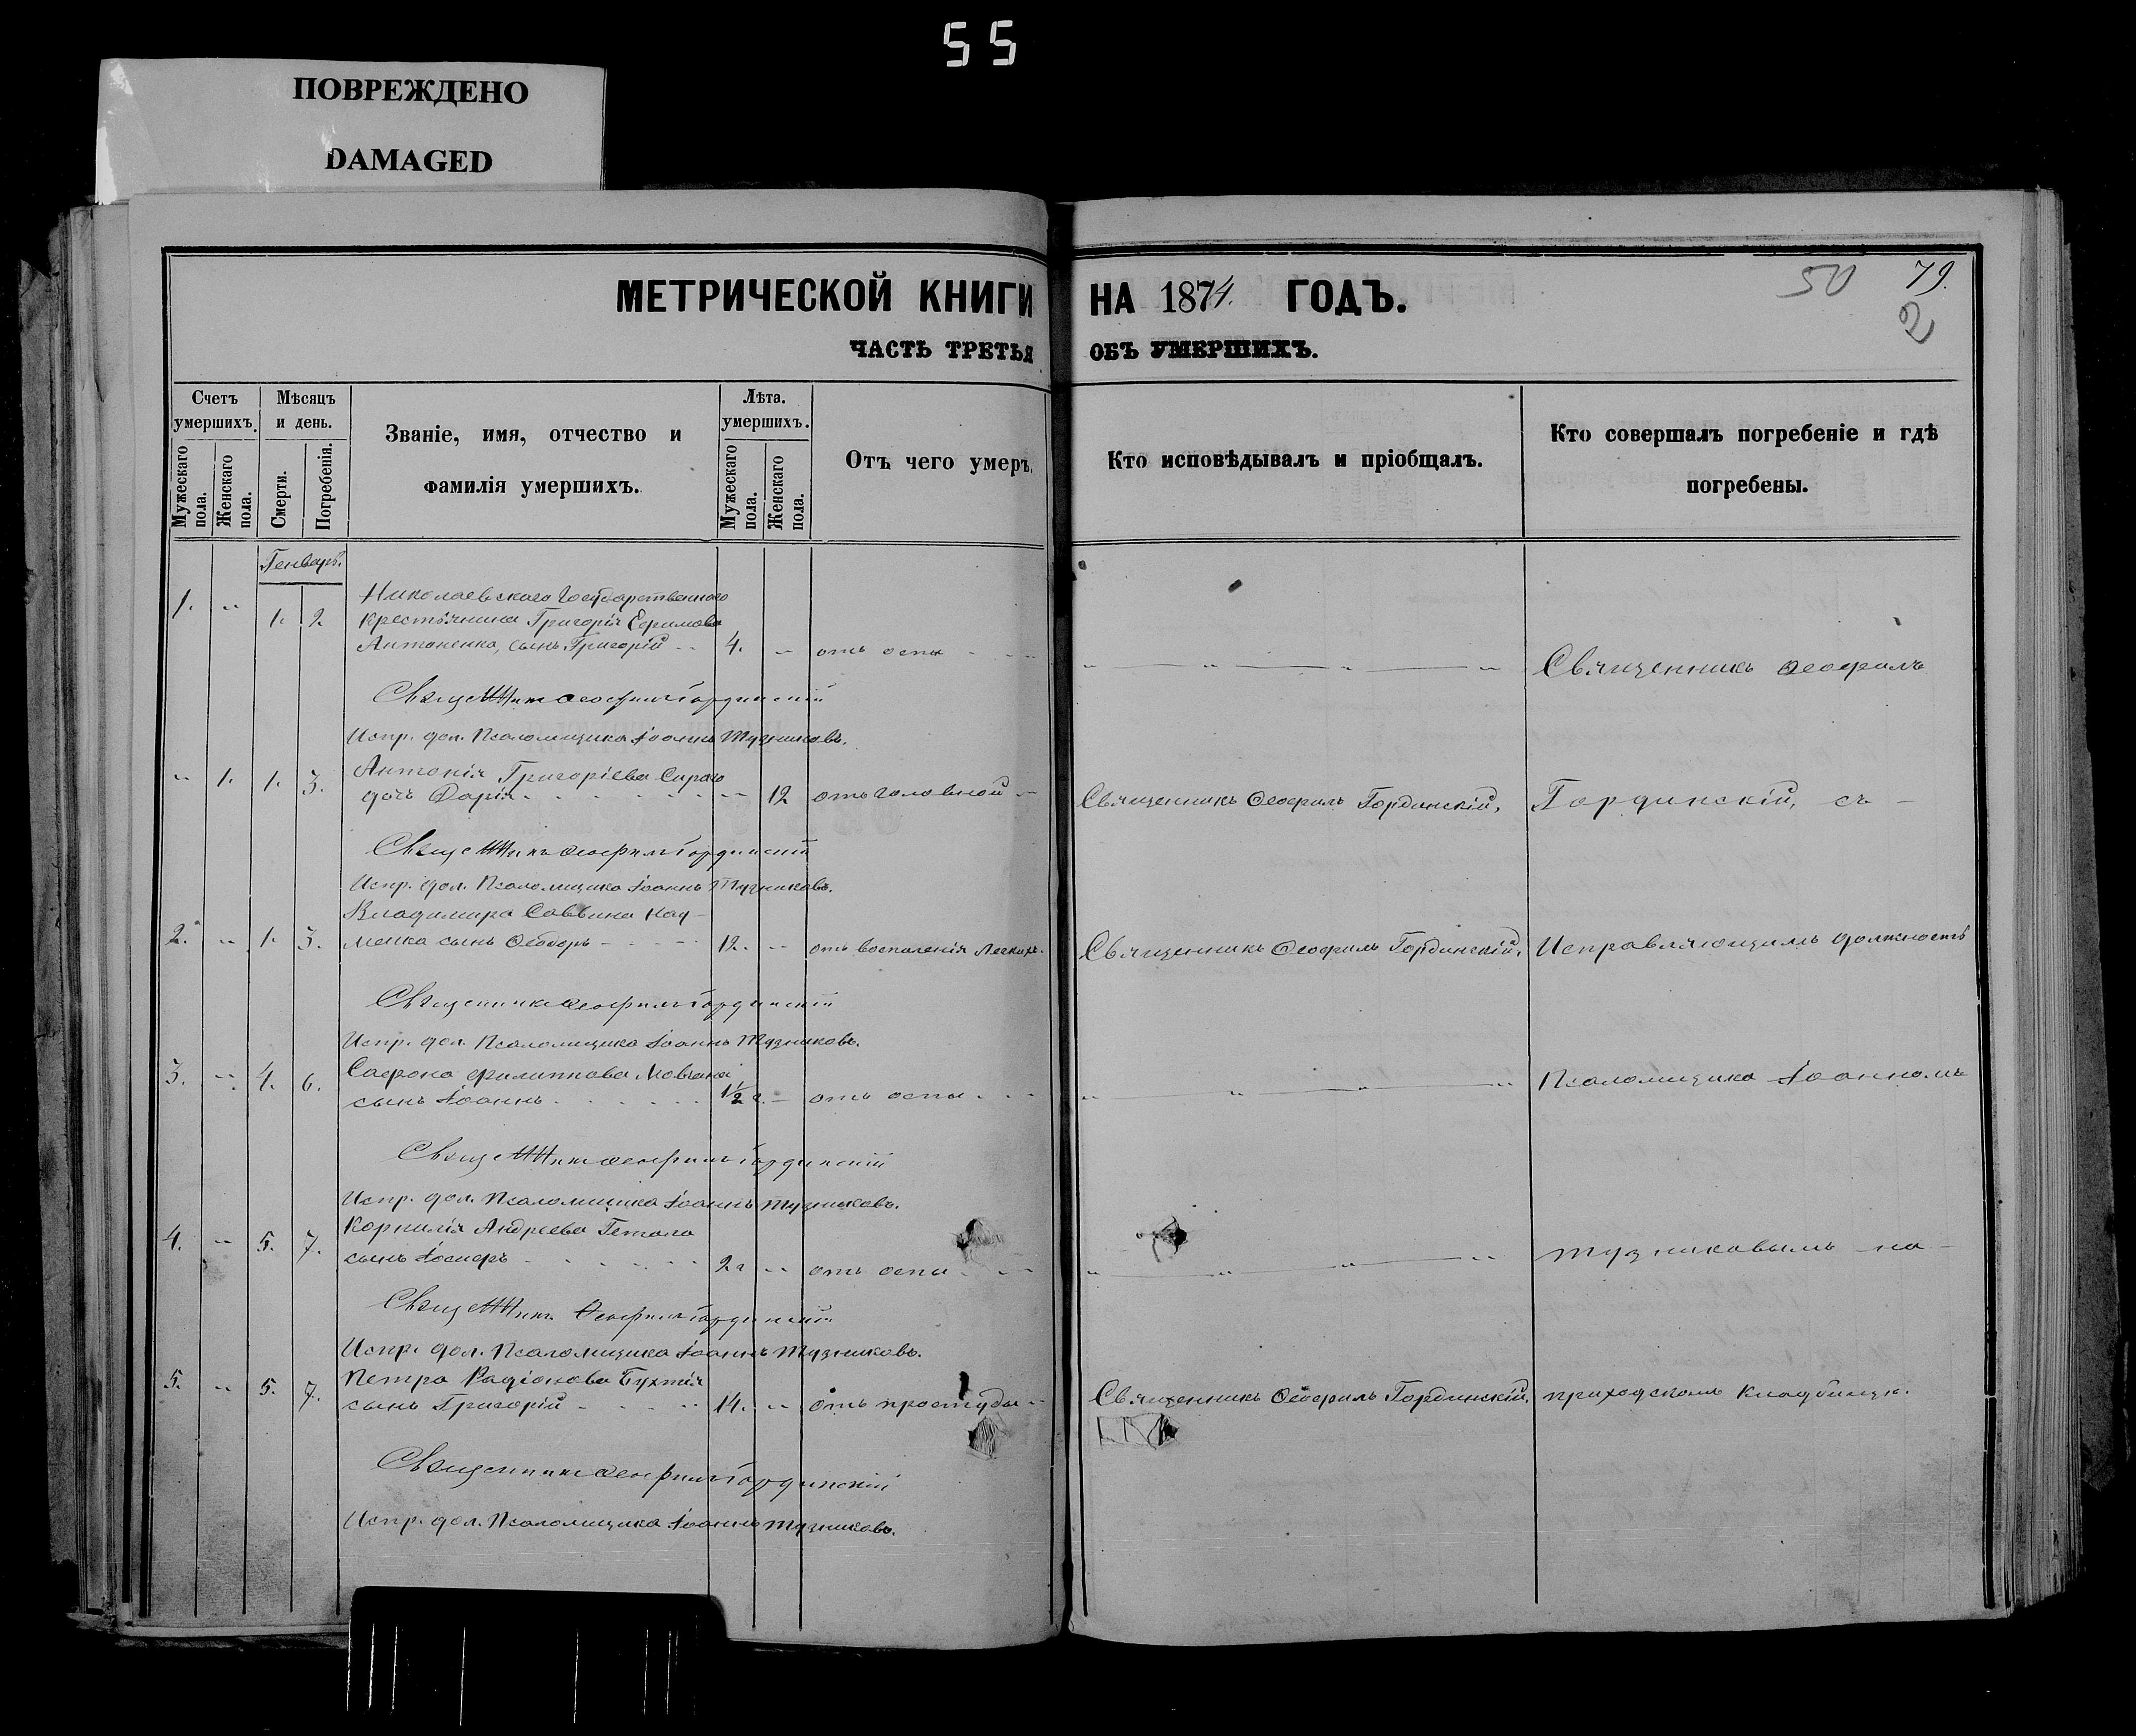 55
ПОВРЕЖДЕНО
DAMAGED
МЕТРИЧЕСКОЙ КНИГИ НА 1874. ГОДЪ.
50 79.
2
ЧАСТЬ ТРЕТЬЯ ОБЪ УМЕРШИХЪ.
Счетъ умершихъ.
Мужескаго пола.
Женскаго пола.
Мѣсяцъ и день.
Смерти.
Погребенія.
Званіе, имя, отчество и
фамилія умершихъ.
Лѣта.
умершихъ.
Мужескаго пола.
Женскаго пола.
Отъ чего умеръ.
Кто исповѣдывалъ и пріобщалъ.
Кто совершалъ погребеніе и гдѣ
погребены.
Генварь.
1. „ 1. 2. Николаевскаго Государственнаго
крестьянина Григорія Ефимова
Антоненка, сынъ Григорій 4. „ отъ оспы
Священникъ Ѳеофилъ
Священникъ Ѳеофилъ Гординскій
Испр. дол. Псаломщика Іоаннъ Тузниковъ.
„ 1. 1. 3. Антонія Григоріева
дочь Дарія „ 12 отъ головной
Священникъ Ѳеофилъ Гординскій,
Гординскій, съ
Священникъ Ѳеофилъ Гординскій
Испр. дол. Псаломщика Іоаннъ Тузниковъ.
Владиміра Саввина Нау-
2. „ 1. 3. менка сынъ Ѳеодоръ 12. „ отъ воспаленія легкихъ.
Священникъ Ѳеофилъ Гординскій,
Исправляющимъ должность
Священникъ Ѳеофилъ Гординскій
Испр. дол. Псаломщика Іоаннъ Тузниковъ.
3. „ 4. 6. Сафрона Филиппова Мовчана
сынъ Іоаннъ 1½ г. „ отъ оспы
Псаломщика Іоанномъ
Священникъ Ѳеофилъ Гординскій
Испр. дол. Псаломщика Іоаннъ Тузниковъ.
4. „ 5. 7. Корнилія Андреева
сынъ Іосифъ 2 г „ отъ оспы
Тузниковымъ на
Священникъ Ѳеофилъ Гординскій
Испр. дол. Псаломщика Іоаннъ Тузниковъ.
5. „ 5. 7. Петра Радіонова
сынъ Григорій 14. „ отъ простуды
Священникъ Ѳеофилъ Гординскій,
приходскомъ кладбищѣ.
Священникъ Ѳеофилъ Гординскій
Испр. дол. Псаломщика Іоаннъ Тузниковъ.